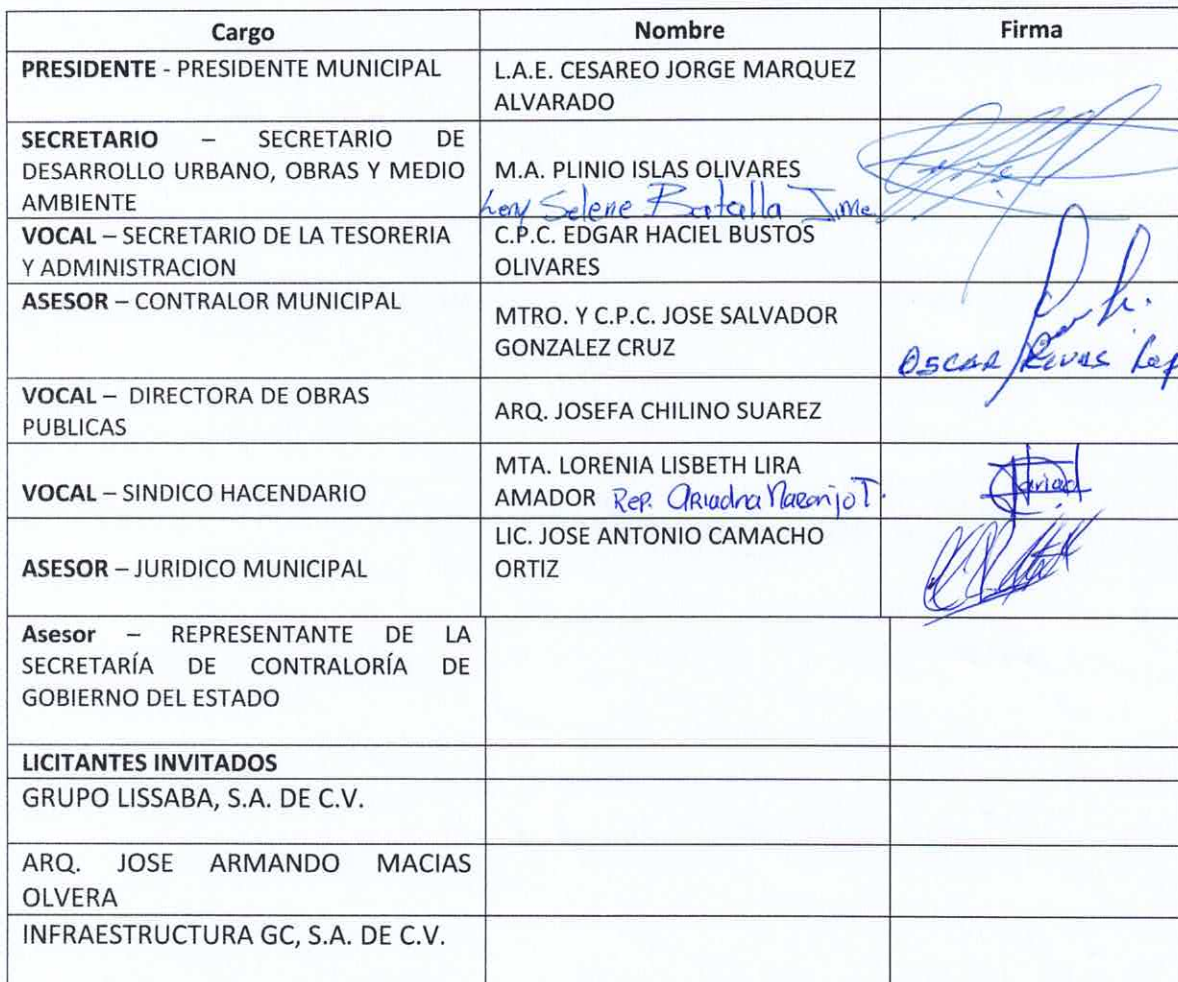 Cargo Nombre Firma
PRESIDENTE - PRESIDENTE MUNICIPAL
L.A.E. CESAREO JORGE MARQUEZ
ALVARADO
SECRETARIO – SECRETARIO DE
DESARROLLO URBANO, OBRAS Y MEDIO
AMBIENTE
M.A. PLINIO ISLAS OLIVARES
Selene Batalla
VOCAL – SECRETARIO DE LA TESORERIA
Y ADMINISTRACION
C.P.C. EDGAR HACIEL BUSTOS
OLIVARES
ASESOR – CONTRALOR MUNICIPAL
MTRO. Y C.P.C. JOSE SALVADOR
GONZALEZ CRUZ
OSCAR Rivas
VOCAL – DIRECTORA DE OBRAS
PUBLICAS
ARQ. JOSEFA CHILINO SUAREZ
VOCAL – SINDICO HACENDARIO
MTA. LORENIA LISBETH LIRA
AMADOR Rep. Ariadna Naranjo T.
ASESOR – JURIDICO MUNICIPAL
LIC. JOSE ANTONIO CAMACHO
ORTIZ
Asesor – REPRESENTANTE DE LA
SECRETARÍA DE CONTRALORÍA DE
GOBIERNO DEL ESTADO
LICITANTES INVITADOS
GRUPO LISSABA, S.A. DE C.V.
ARQ. JOSE ARMANDO MACIAS
OLVERA
INFRAESTRUCTURA GC, S.A. DE C.V.